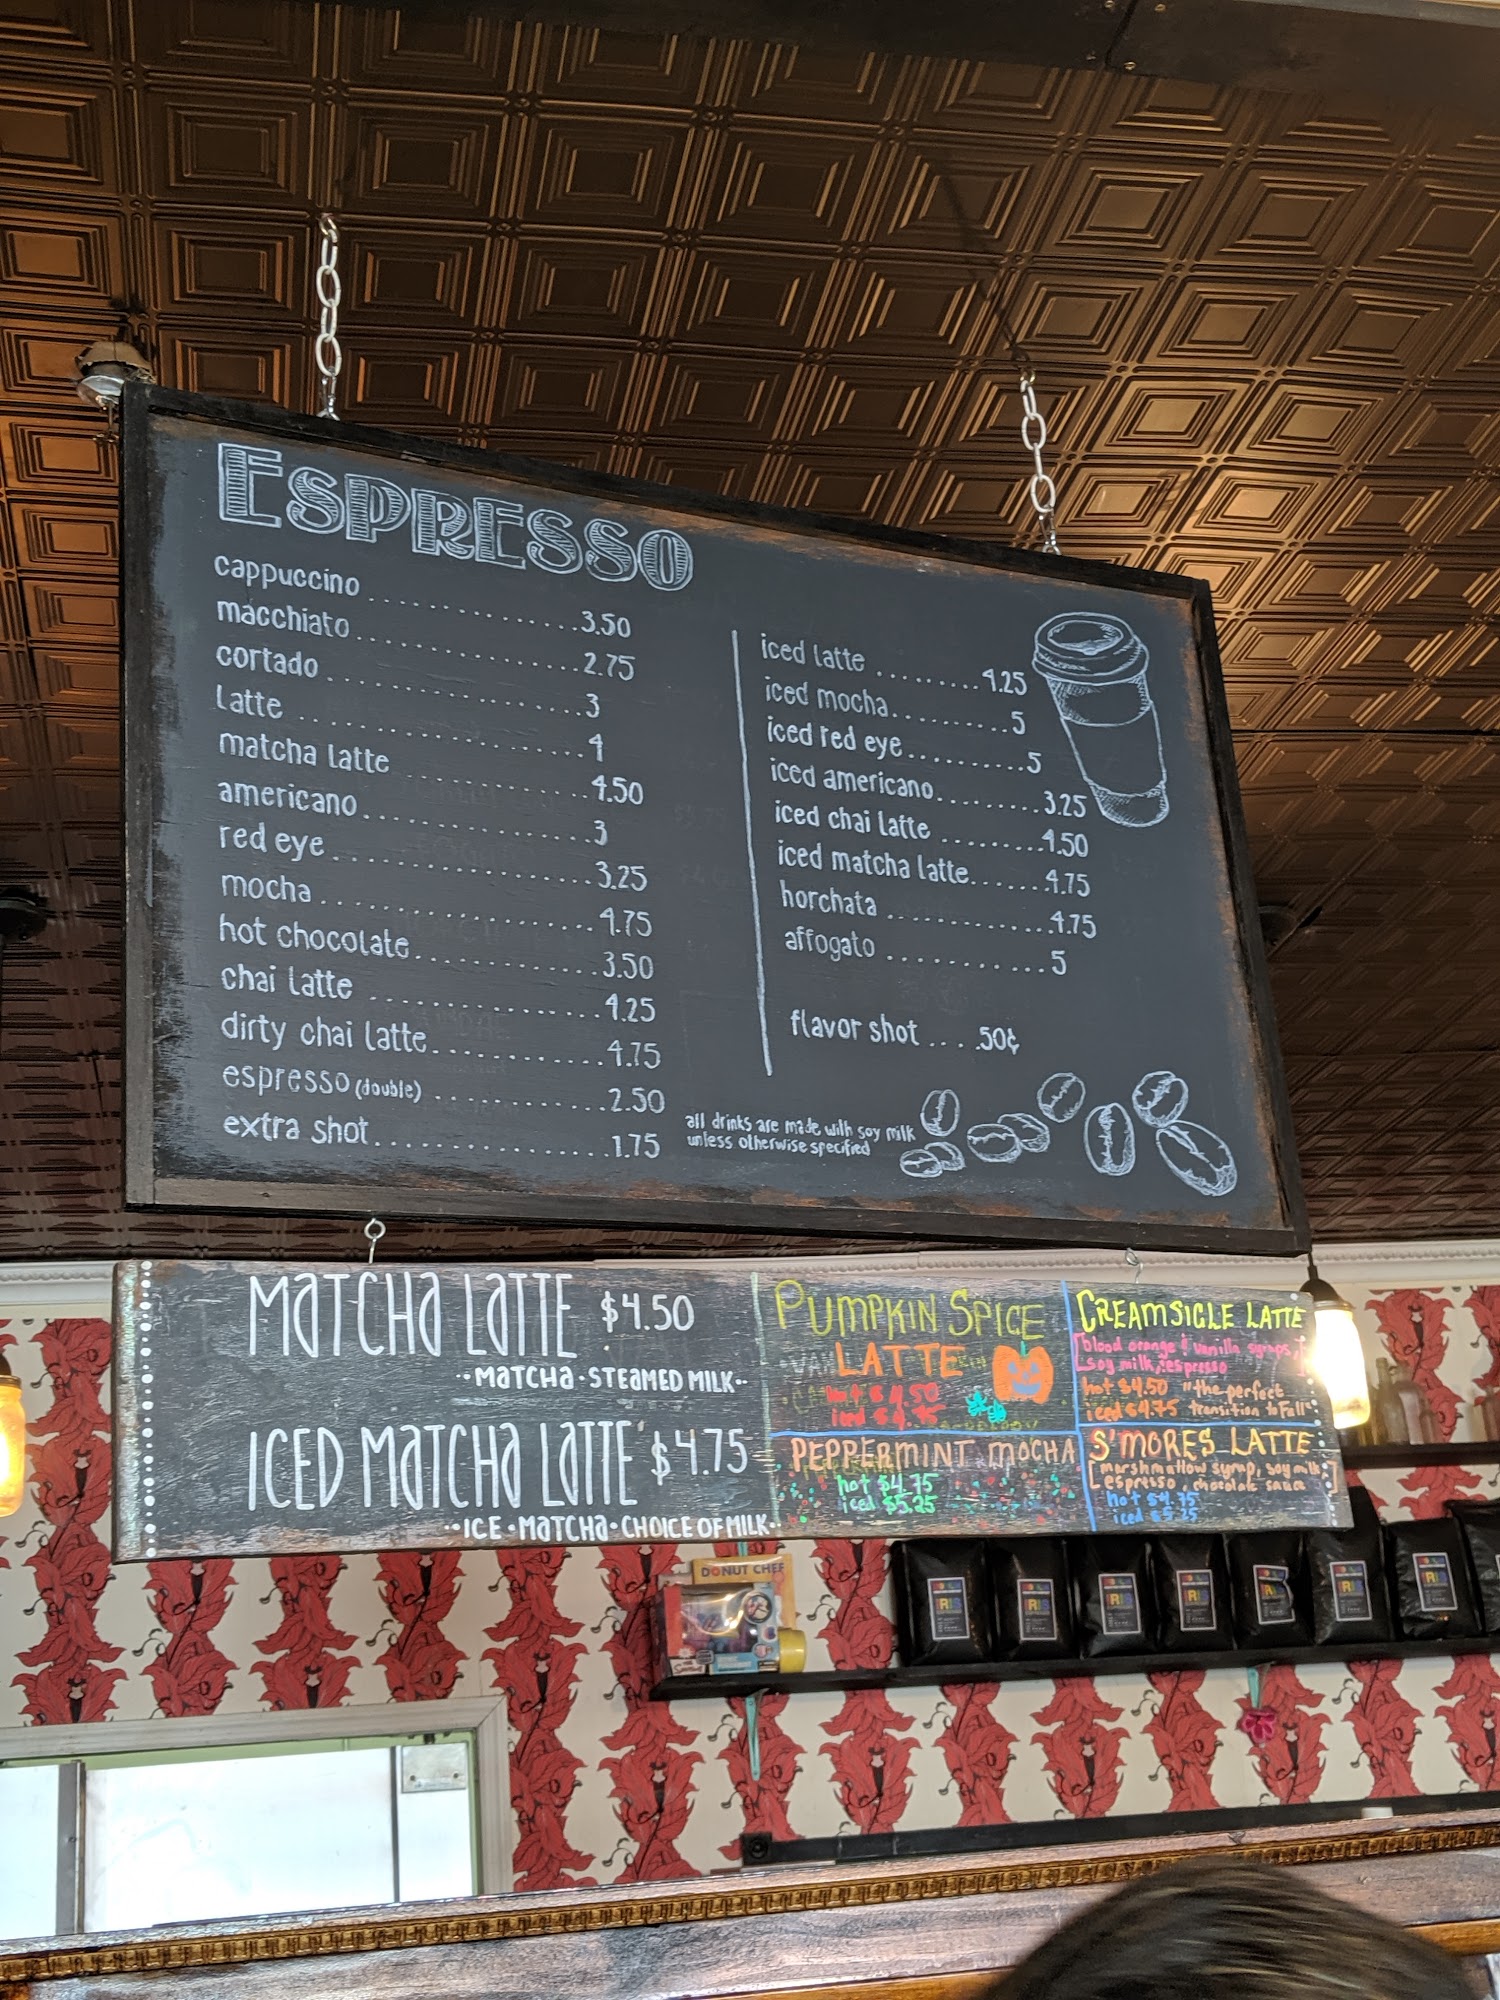 ESPRESSO
cappuccino ........ 3.50
macchiato ........ 2.75
cortado ........ 3
latte ........ 4
matcha latte ........ 4.50
americano ........ 3
red eye ........ 3.25
mocha ........ 4.75
hot chocolate ........ 3.50
chai latte ........ 4.25
dirty chai latte ........ 4.75
espresso (double) ........ 2.50
extra shot ........ 1.75
iced latte ........ 4.25
iced mocha ........ 5
iced red eye ........ 5
iced americano ........ 3.25
iced chai latte ........ 4.50
iced matcha latte ........ 4.75
horchata ........ 4.75
affogato ........ 5
flavor shot .... .50¢
all drinks are made with soy milk
unless otherwise specified
MATCHA LATTE $4.50
MATCHA · STEAMED MILK
ICED MATCHA LATTE $4.75
ICE · MATCHA · CHOICE OF MILK
PUMPKIN SPICE
LATTE
hot $4.50
iced $4.75
PEPPERMINT MOCHA
hot $4.75
iced $5.25
CREAMSICLE LATTE
[blood orange & vanilla syrups,]
[soy milk, espresso
hot $4.50 "the perfect
iced $4.75 transition to Fall"
S'MORES LATTE
[marshmallow syrup, soy milk]
espresso, chocolate sauce
hot $4.75
iced $5.25
DONUT CHEF
IRIS
IRIS
IRIS
IRIS
IRIS
IRIS